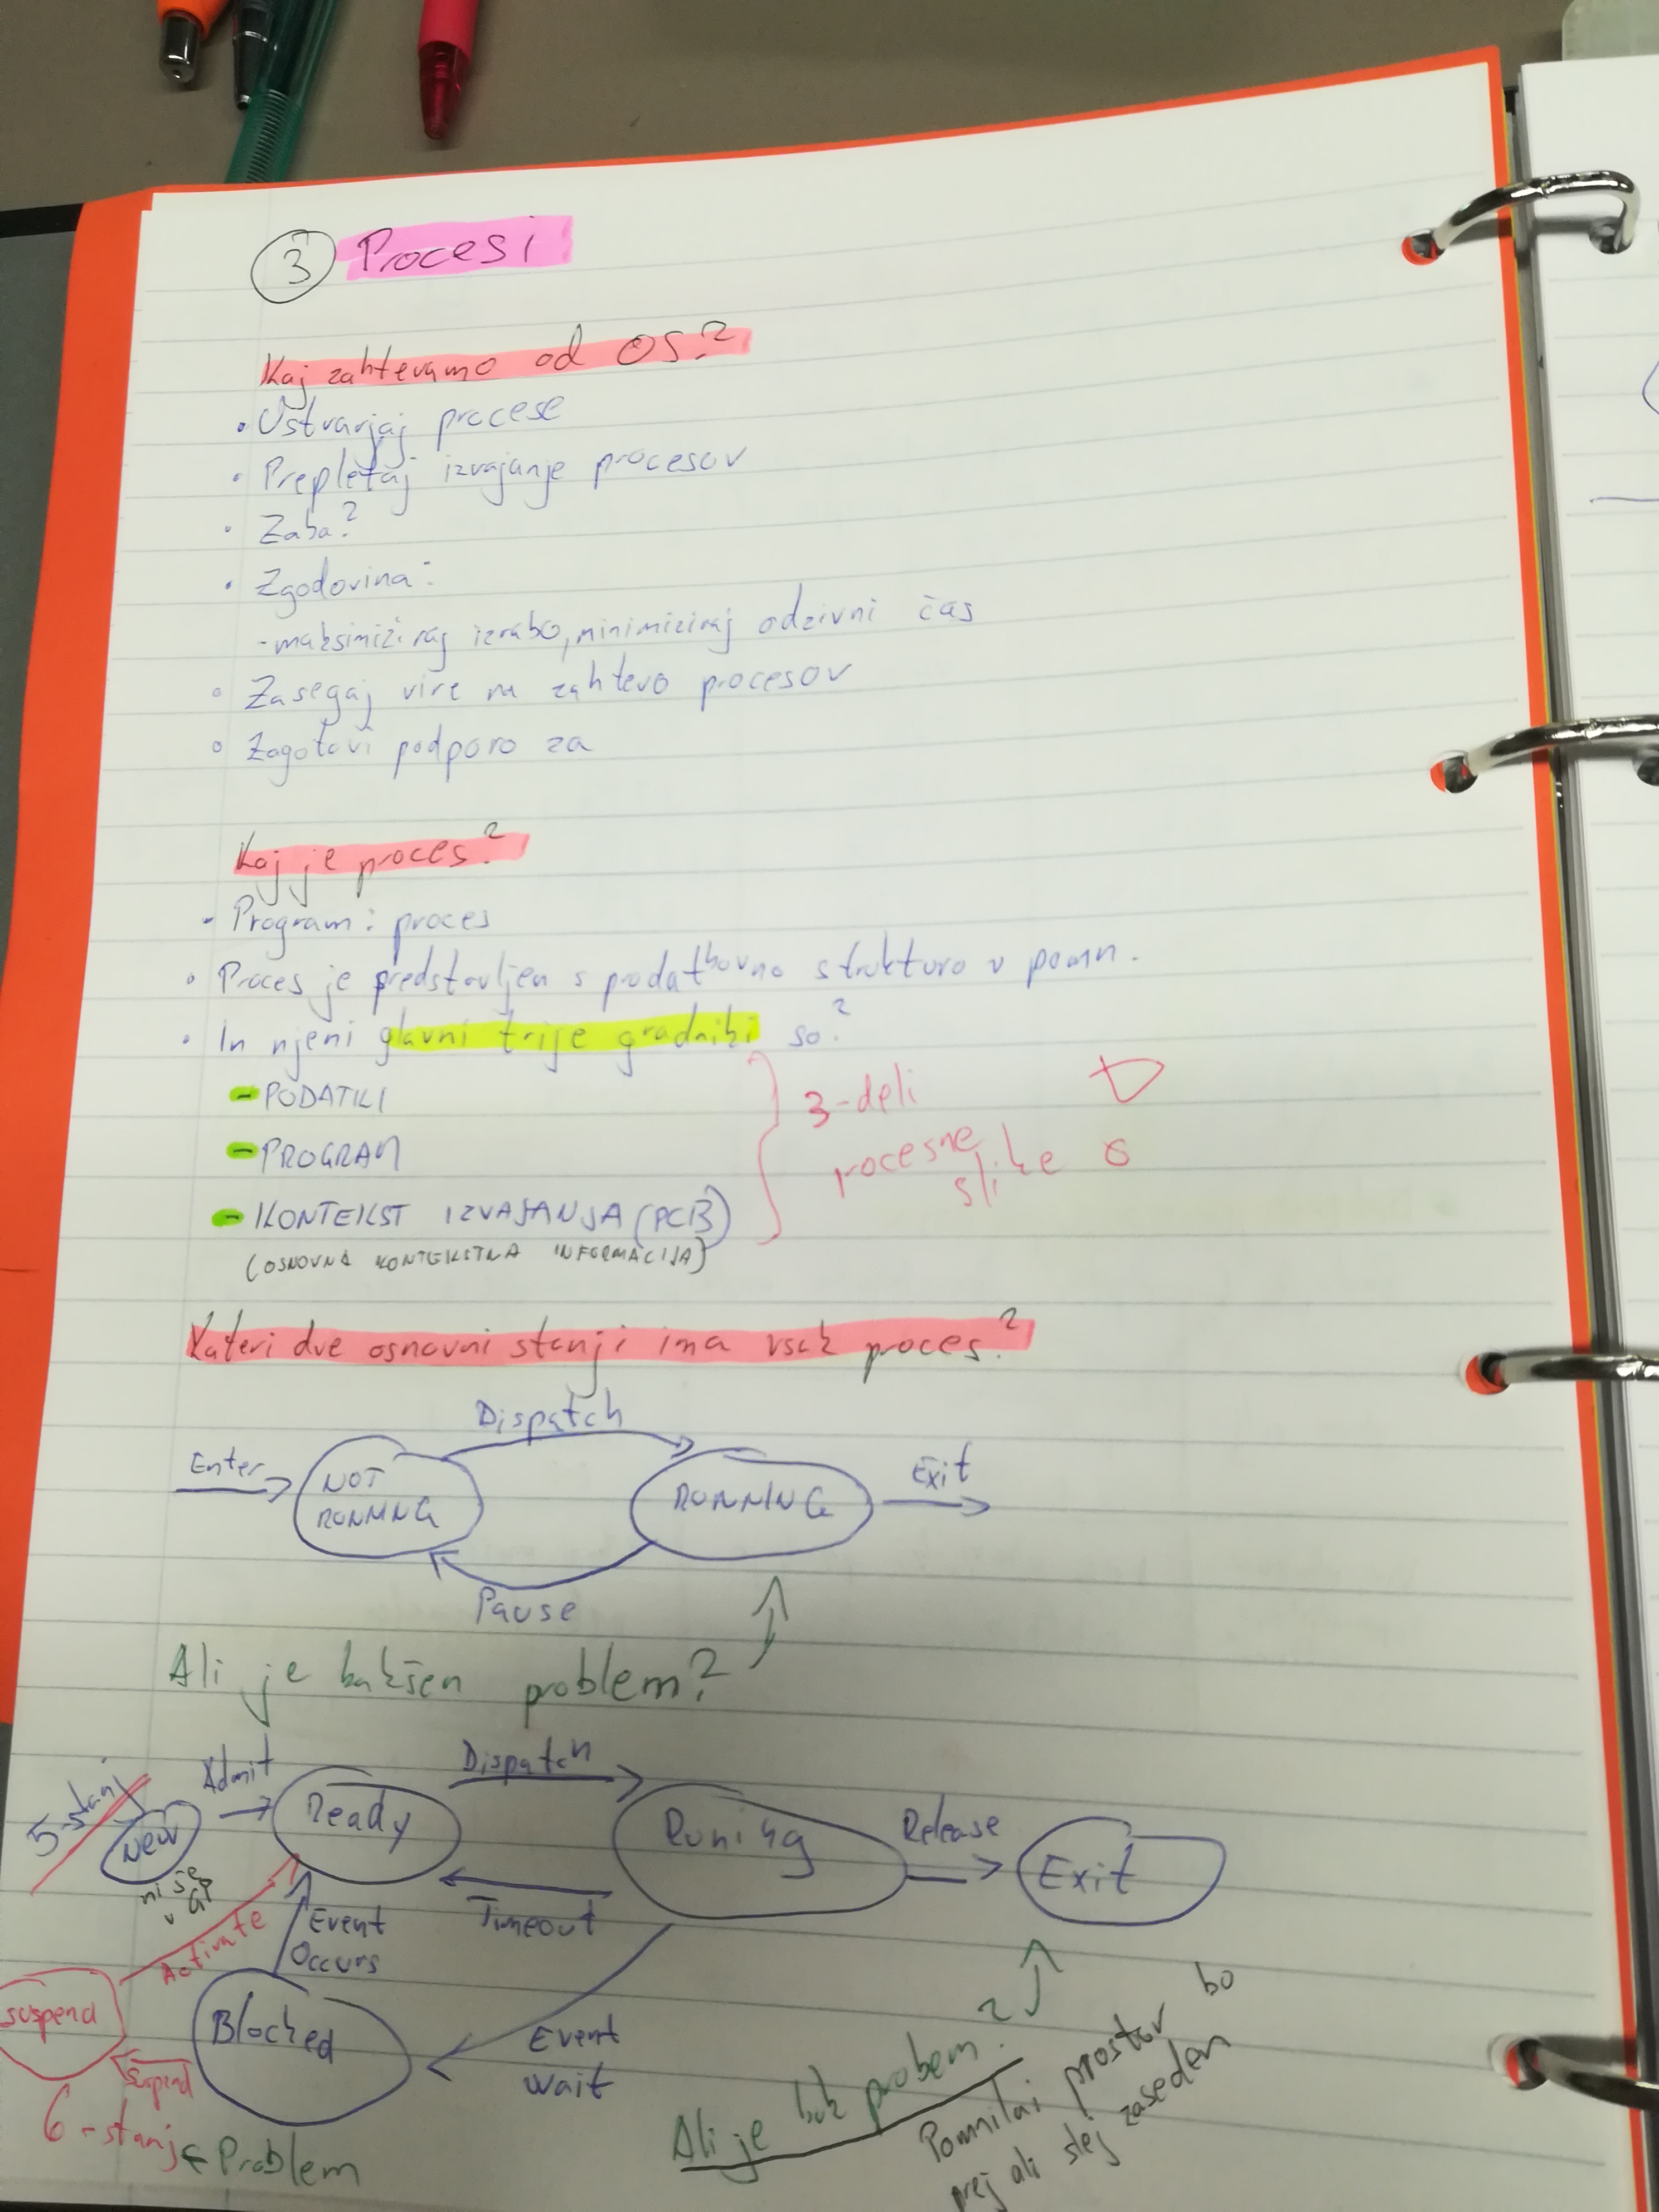 3 Procesi
Kaj zahtevamo od OS?
• Ustvarjaj procese
• Prepletaj izvajanje procesov
• Zaba?
• Zgodovina:
- maksimiziraj izrabo, minimiziraj odzivni čas
• Zasegaj vire na zahtevo procesov
• Zagotovi podporo za
Kaj je proces?
• Program : proces
• Proces je predstavljen s podatkovno strukturo v pomn.
• In njeni glavni trije gradniki so?
- PODATKI
- PROGRAM
- KONTEKST IZVAJANJA (PCB)
(OSNOVNA KONTEKSTNA INFORMACIJA)
3-deli
procesne
slike
Kateri dve osnovni stanji ima vsak proces?
Dispatch
Enter
NOT
RUNNING
RUNNING
Exit
Pause
Ali je kakšen problem?
5-stanj
New
ni še
v GP
Admit
Ready
Dispatch
Runing
Release
Exit
Timeout
Activate
Event
Occurs
suspend
Suspend
Blocked
Event
Wait
6-stanj
Problem
Ali je kak probem?
Pomnilni prostor bo
prej ali slej zaseden